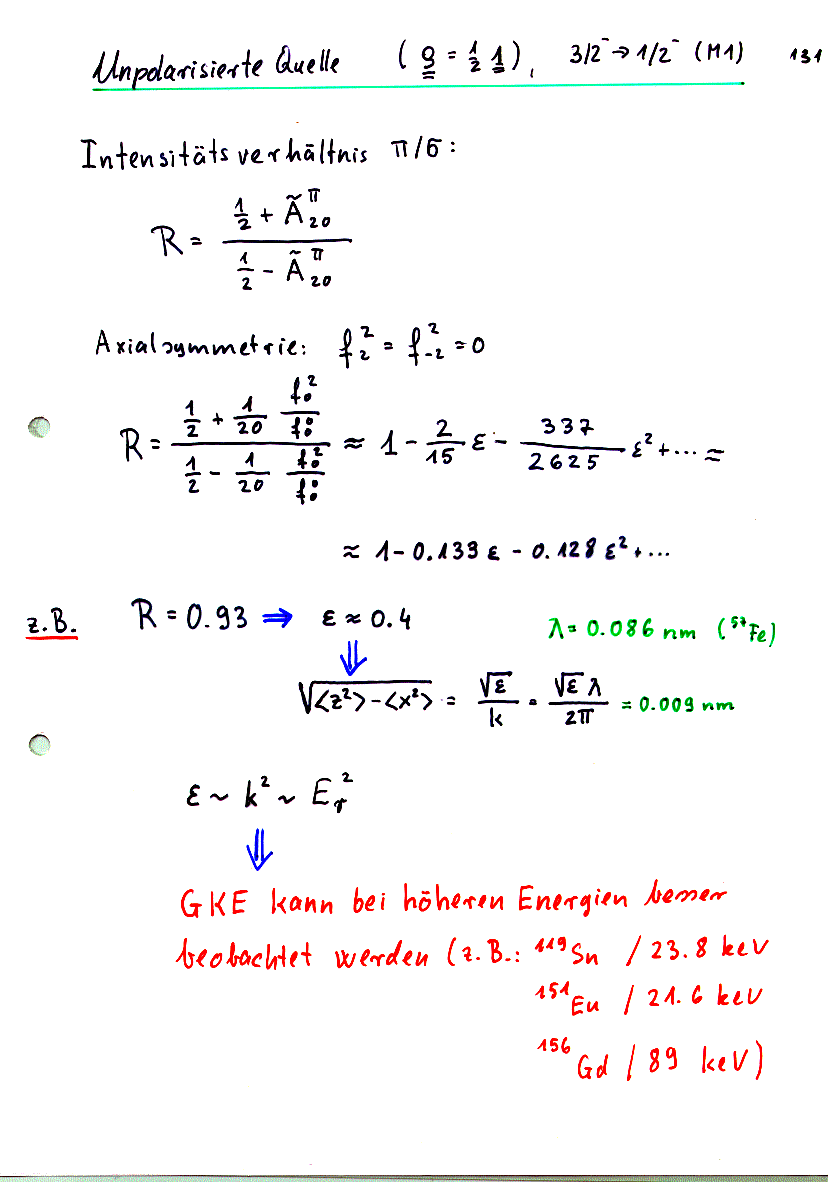 Unpolarisierte Quelle ( ρ = 1/2 1 ), 3/2⁻ → 1/2⁻ (M1) 131
Intensitätsverhältnis π/σ :
R = (1/2 + Ã₂₀^π) / (1/2 - Ã₂₀^π)
Axialsymmetrie: f₂² = f₋₂² = 0
R = (1/2 + 1/20 f₀²/f₀⁰) / (1/2 - 1/20 f₀²/f₀⁰) ≈ 1 - 2/15 ε - 337/2625 ε² + ... ≈
≈ 1 - 0.133 ε - 0.128 ε² + ...
z.B. R = 0.93 ⇒ ε ≈ 0.4 λ = 0.086 nm (⁵⁷Fe)
⇓
√(<z²> - <x²>) = √ε / k = √ε λ / 2π = 0.009 nm
ε ~ k² ~ Eᵣ²
⇓
GKE kann bei höheren Energien besser
beobachtet werden (z.B.: ¹¹⁹Sn / 23.8 keV
¹⁵¹Eu / 21.6 keV
¹⁵⁶Gd / 89 keV)